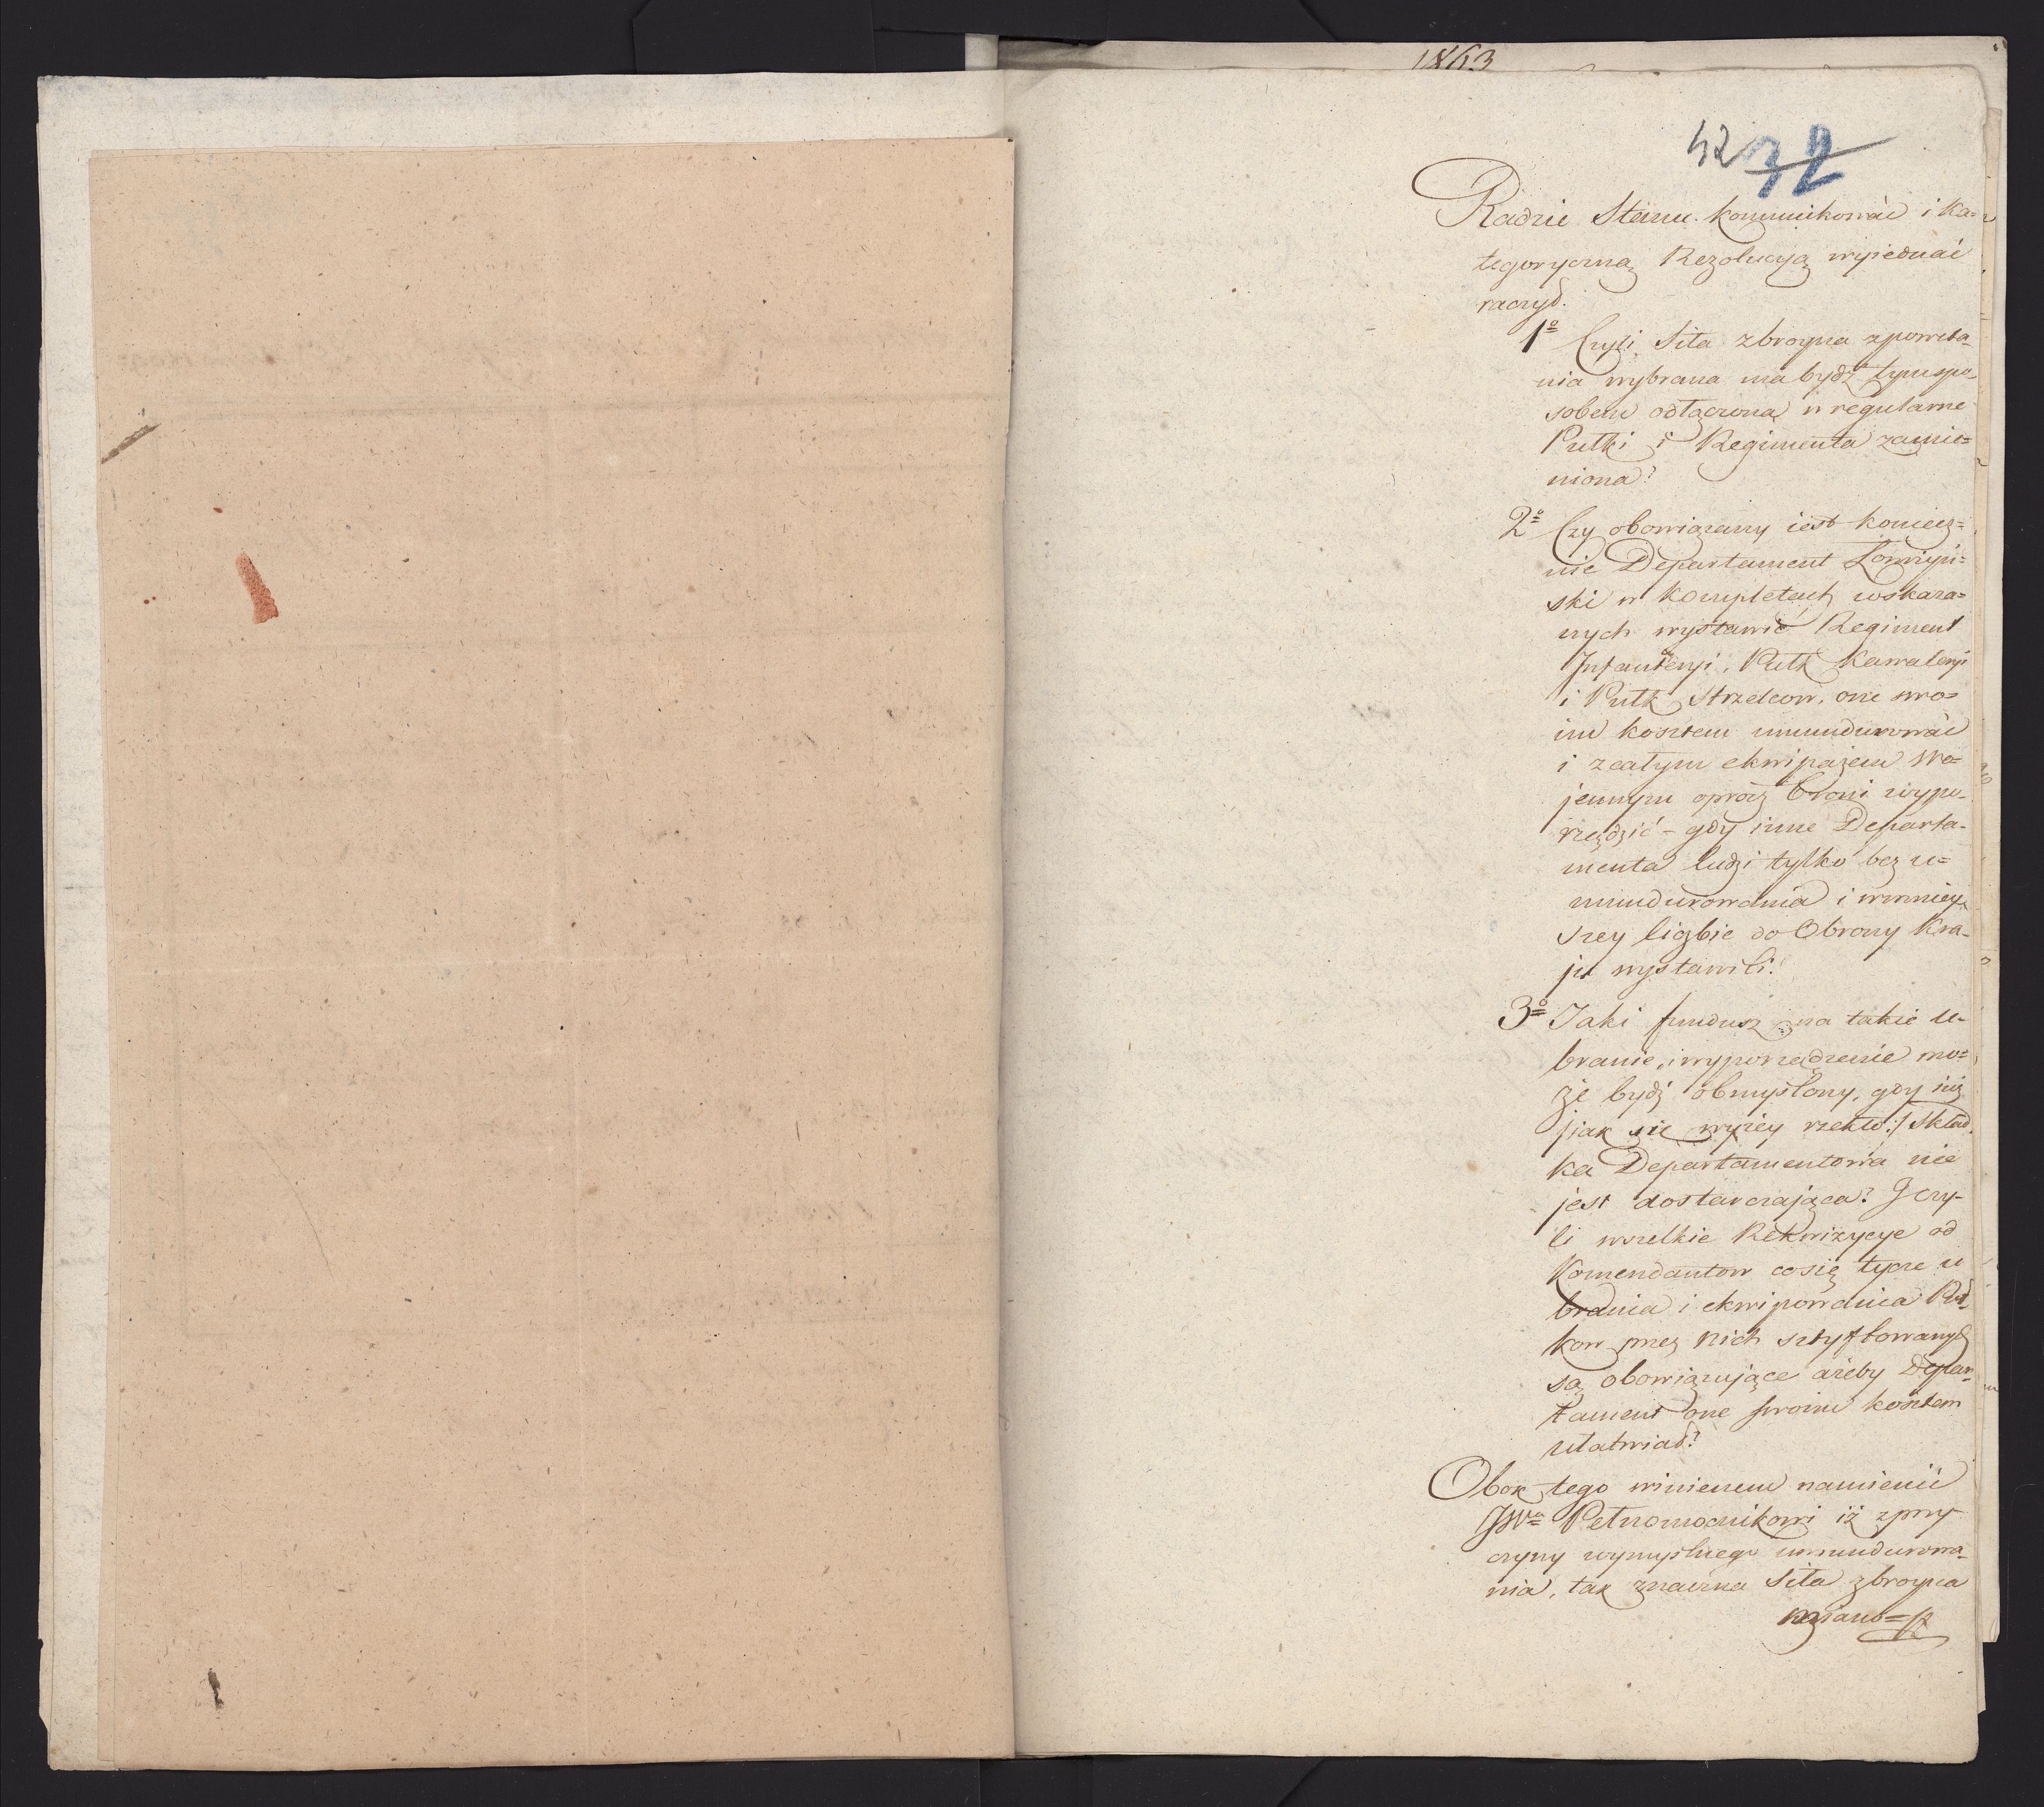 1863
42 32
Radzie Stanu komunikować i Ka=
tegoryczną Rezolucyą wyiednać
raczył.
1º Czyli Siła zbroyna zpowsta=
nia wybrana ma bydź tym spo=
sobem odłączona w regularne
Pułki i Regimenta zamie=
niona?
2º Czy obowiązany iest koniecz=
nie Departament Łomżyń=
ski w kompletach wskaza=
nych wystawić Regiment
Infanteryi, Pułk Kawaleryi
i Pułk Strzelcow, one swo=
im kosztem umundurować
i zcałym ekwipażem wo=
jennym oprócz broni wypo=
rządzić – gdy inne Departa=
menta ludzi tylko bez u=
mundurowania i wmniey
szey liczbie do Obrony Kra=
ju wystawili?
3º Jaki fundusz na takie u=
branie, i wyporządzenie mo=
że bydź obmyślony, gdy już
/jak się wyżey rzekło:/ Skład
ka Departamentowa nie
jest dostarczająca? J czy=
li wszelkie Rekwizycye od
Komendantow co się tycze u
brania i ekwipowania Puł=
kow przez Nich sztyftowanych
są obowiązujące ażeby Depar=
tament one swoim kosztem
ułatwiał?
Obok tego winienem namienić
JWº Pełnomocnikowi iż zprzy
czyny wymyslnego umundurowa=
nia, tak znaczna Siła zbroyna